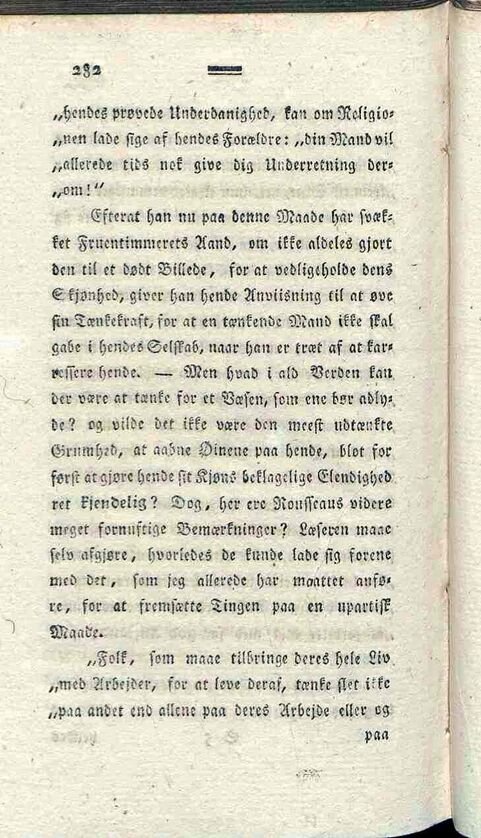 232
„hendes prøvede Underdanighed, kan om Religio-
„nen lade sige af hendes Forældre: „din Mand vil
„allerede tids nok give dig Underretning der-
„om!“
Efterat han nu paa denne Maade har svæk-
ket Fruentimmerets Aand, om ikke aldeles gjort
den til et dødt Billede, for at vedligeholde dens
Skjønhed, giver han hende Anviisning til at øve
sin Tænkekraft, for at en tænkende Mand ikke skal
gabe i hendes Selskab, naar han er træt af at kar-
ressere hende. — Men hvad i ald Verden kan
der være at tænke for et Væsen, som ene bør adly-
de? og vilde det ikke være den meest udtænkte
Grumhed, at aabne Øinene paa hende, blot for
først at gjøre hende sit Kjøns beklagelige Elendighed
ret kjendelig? Dog, her ere Rousseaus videre
meget fornuftige Bemærkninger? Læseren maae
selv afgjøre, hvorledes de kunde lade sig forene
med det, som jeg allerede har maattet anfø-
re, for at fremsætte Tingen paa en upartisk
Maade.
„Folk, som maae tilbringe deres hele Liv
„med Arbejder, for at leve deraf, tænke slet ikke
„paa andet end allene paa deres Arbejde eller og
paa